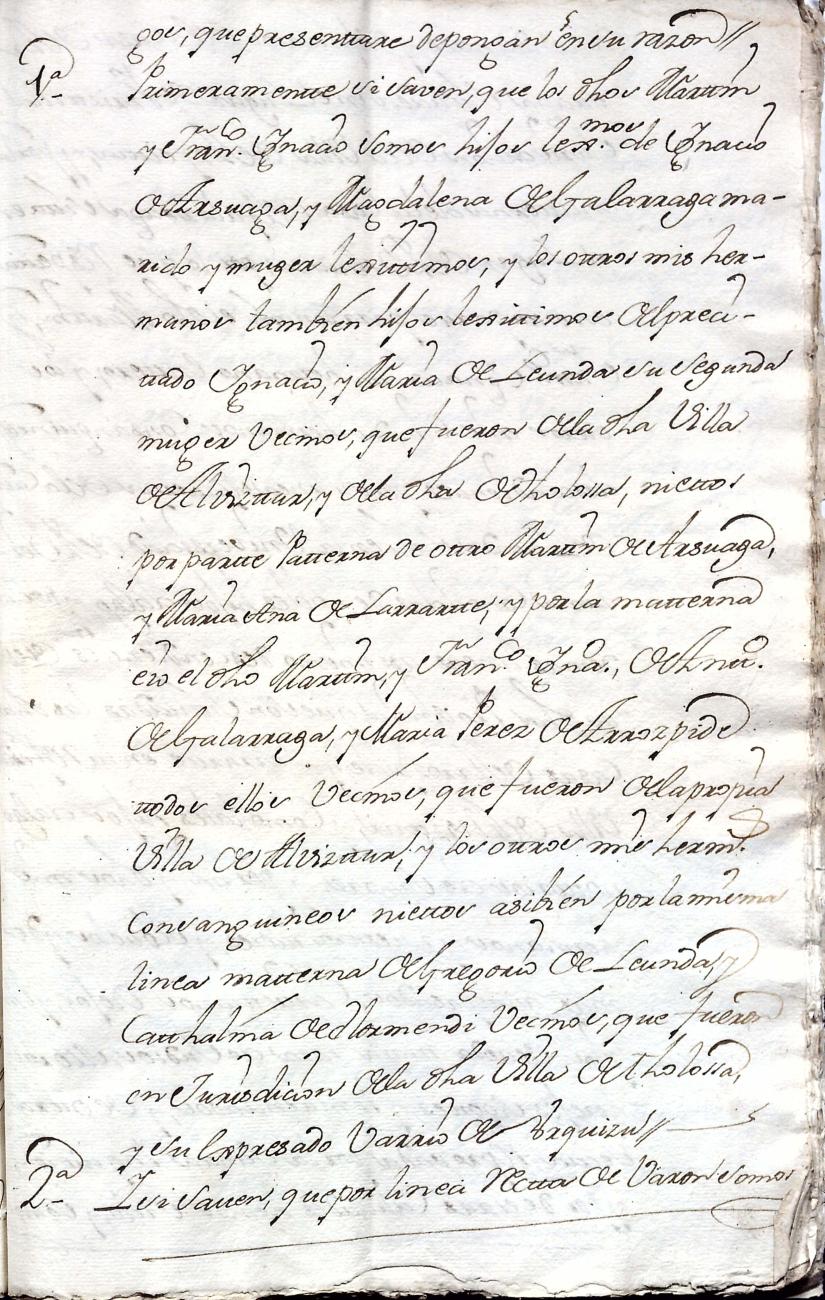 gos, que presenttare depongan en su razon//
1ª Primeramentte si saven, que los dhos Martin
y Franco. Ignacio somos hijos lexmos. de Ignacio
de Arsuaga, y Magdalena de Galarraga ma-
rido y muger lexittimos, y los otros mis her-
manos tambien hijos lexittimos del preci-
ttado Ignacio, y Maria de Leunda su segunda
muger Vecinos, que fueron de la dha Villa
de Alvizttur, y de la dha de Tholossa, niettos
por partte Patterna de ottro Martin de Arsuaga,
y Maria Ana de Larrartte, y por la matterna
es el dho Martin, y Franco. Igno., de Anto.
de Galarraga, y Maria Perez de Arrozpide
ttodos ellos Vecinos, que fueron de la propia
Villa de Alvizttur, y los ottros mis hermos.
Consanguineos niettos asi bien por la misma
linea matterna de Gregorio de Leunda, y
Catthalina de Hormendi Vecinos, que fueron
en Jurisdicion de la dha Villa de Tholossa,
y su Expresado Varrio de Urquizu//
2ª Y si saven, que por linea Rectta de Varon somos